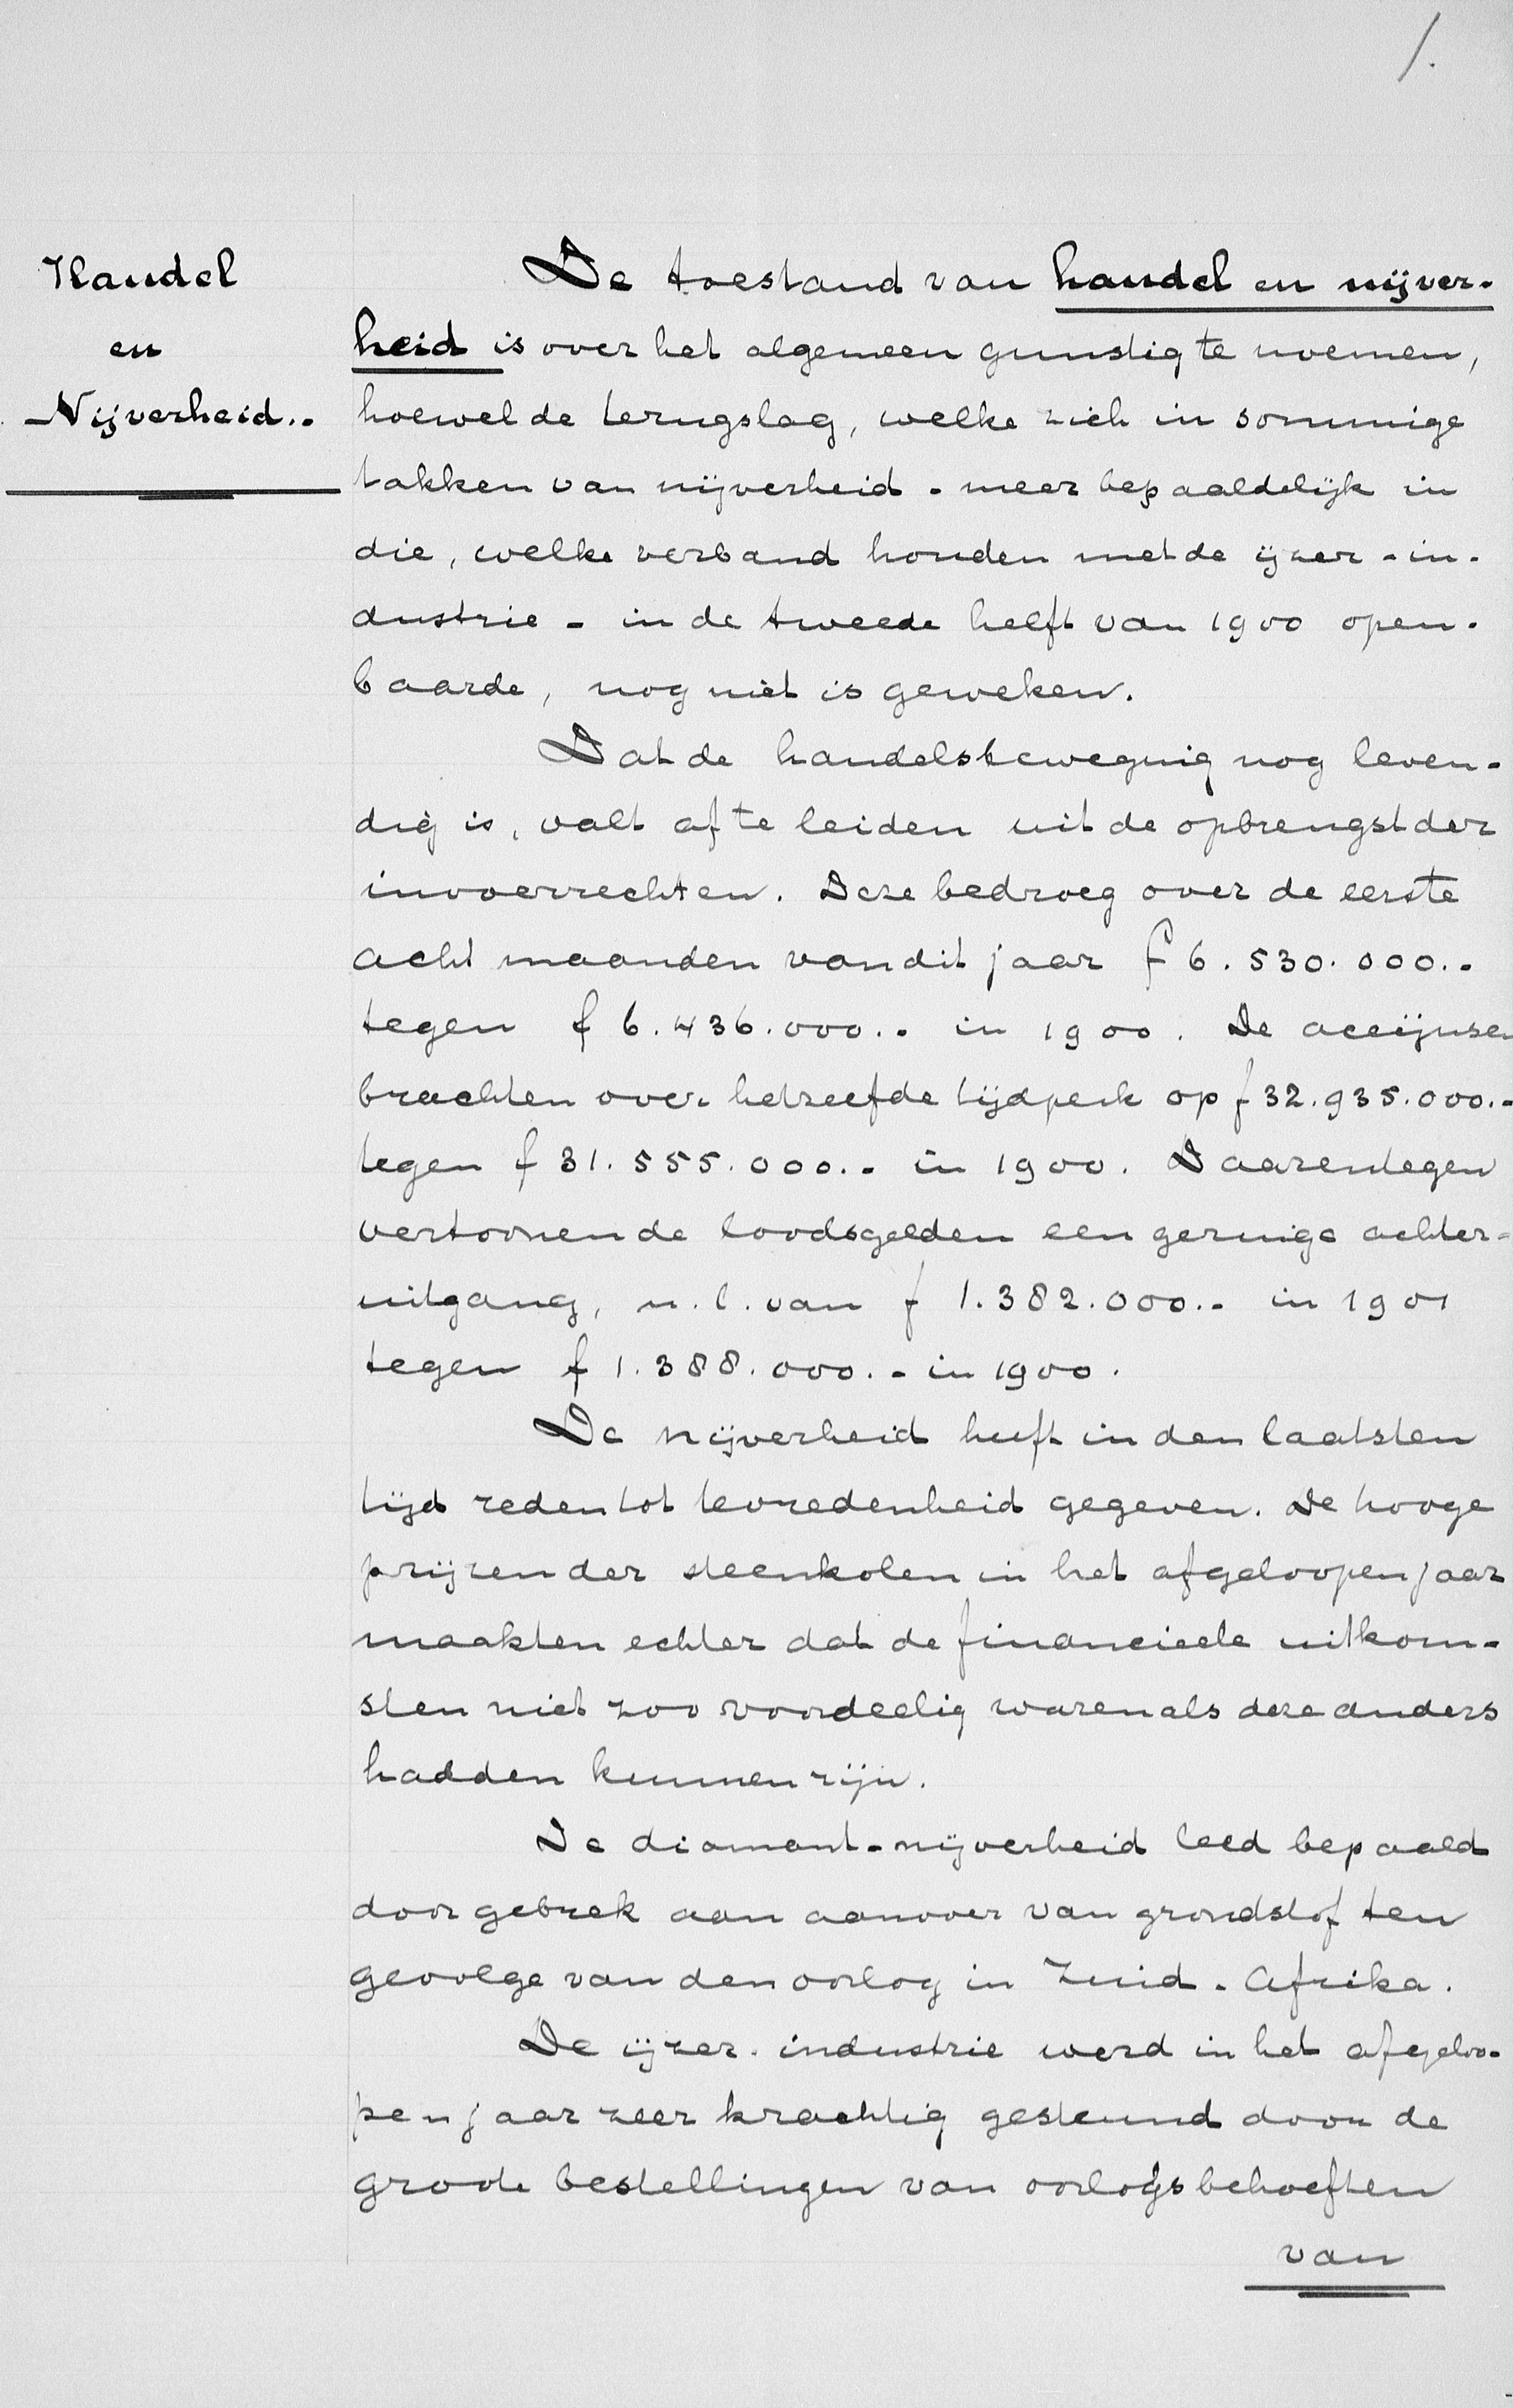 1.
Handel
en
Nijverheid..
De toestand van handel en nijver-
heid is over het algemeen gunstig te noemen,
hoewel de terugslag, welke zich in sommige
takken van nijverheid - meer bepaaldelijk in
die, welke verband houden met de ijzer-in-
dustrie - in de tweede helft van 1900 open-
baarde, nog niet is geweken.
Dat de handelsbeweging nog leven-
dig is, valt af te leiden uit de opbrengst der
invoerrechten. Deze bedroeg over de eerste
acht maanden van dit jaar f 6.530.000.-
tegen f 6.436.000.- in 1900. De accijnsen
brachten over hetzelfde tijdperk op f 32.935.000.-
tegen f 31.555.000.- in 1900. Daarentegen
vertoonen de loodsgelden een geringe achter-
uitgang, n.l. van f 1.382.000.- in 1901
tegen f 1.388.000.- in 1900.
De nijverheid heeft in den laatsten
tijd reden tot tevredenheid gegeven. De hooge
prijzen der steenkolen in het afgeloopen jaar
maakten echter dat de financieele uitkom-
sten niet zoo voordeelig waren als deze anders
hadden kunnen zijn.
De diamant-nijverheid leed bepaald
door gebrek aan aanvoer van grondstof ten
gevolge van den oorlog in Zuid-Afrika.
De ijzer-industrie werd in het afgeloo-
pen jaar zeer krachtig gesteund door de
groote bestellingen van oorlogsbehoeften
van